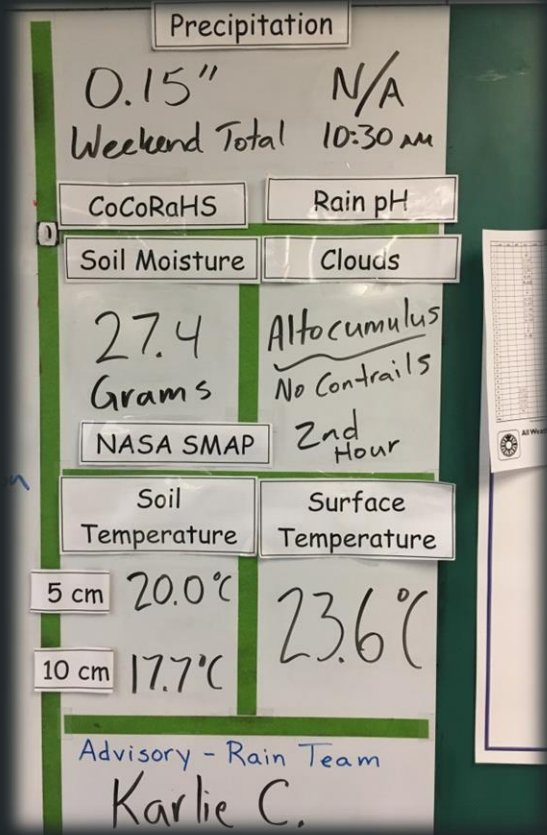 Precipitation
0.15" N/A
Weekend Total 10:30 AM
CoCoRaHS Rain pH
Soil Moisture Clouds
27.4 Altocumulus
Grams No Contrails
NASA SMAP 2nd Hour
Soil Temperature Surface Temperature
5 cm 20.0°C 23.6°C
10 cm 17.7°C
Advisory - Rain Team
Karlie C.